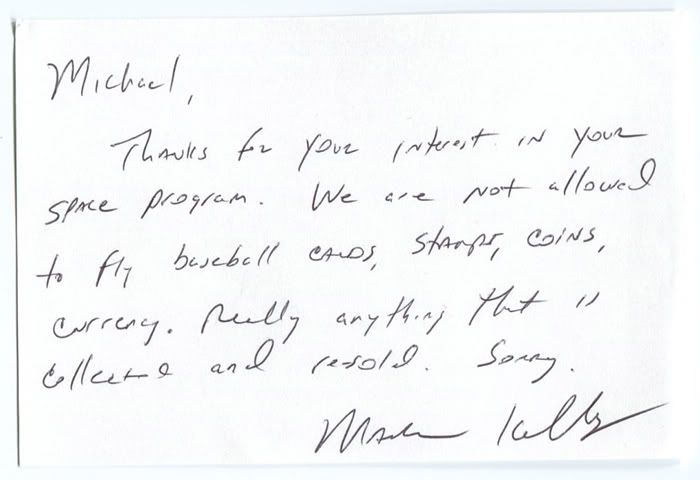 Michael,
Thanks for your interest in your
space program. We are not allowed
to fly baseball cards, stamps, coins,
currency. Really anything that is
collected and resold. Sorry.
Mark Kelly